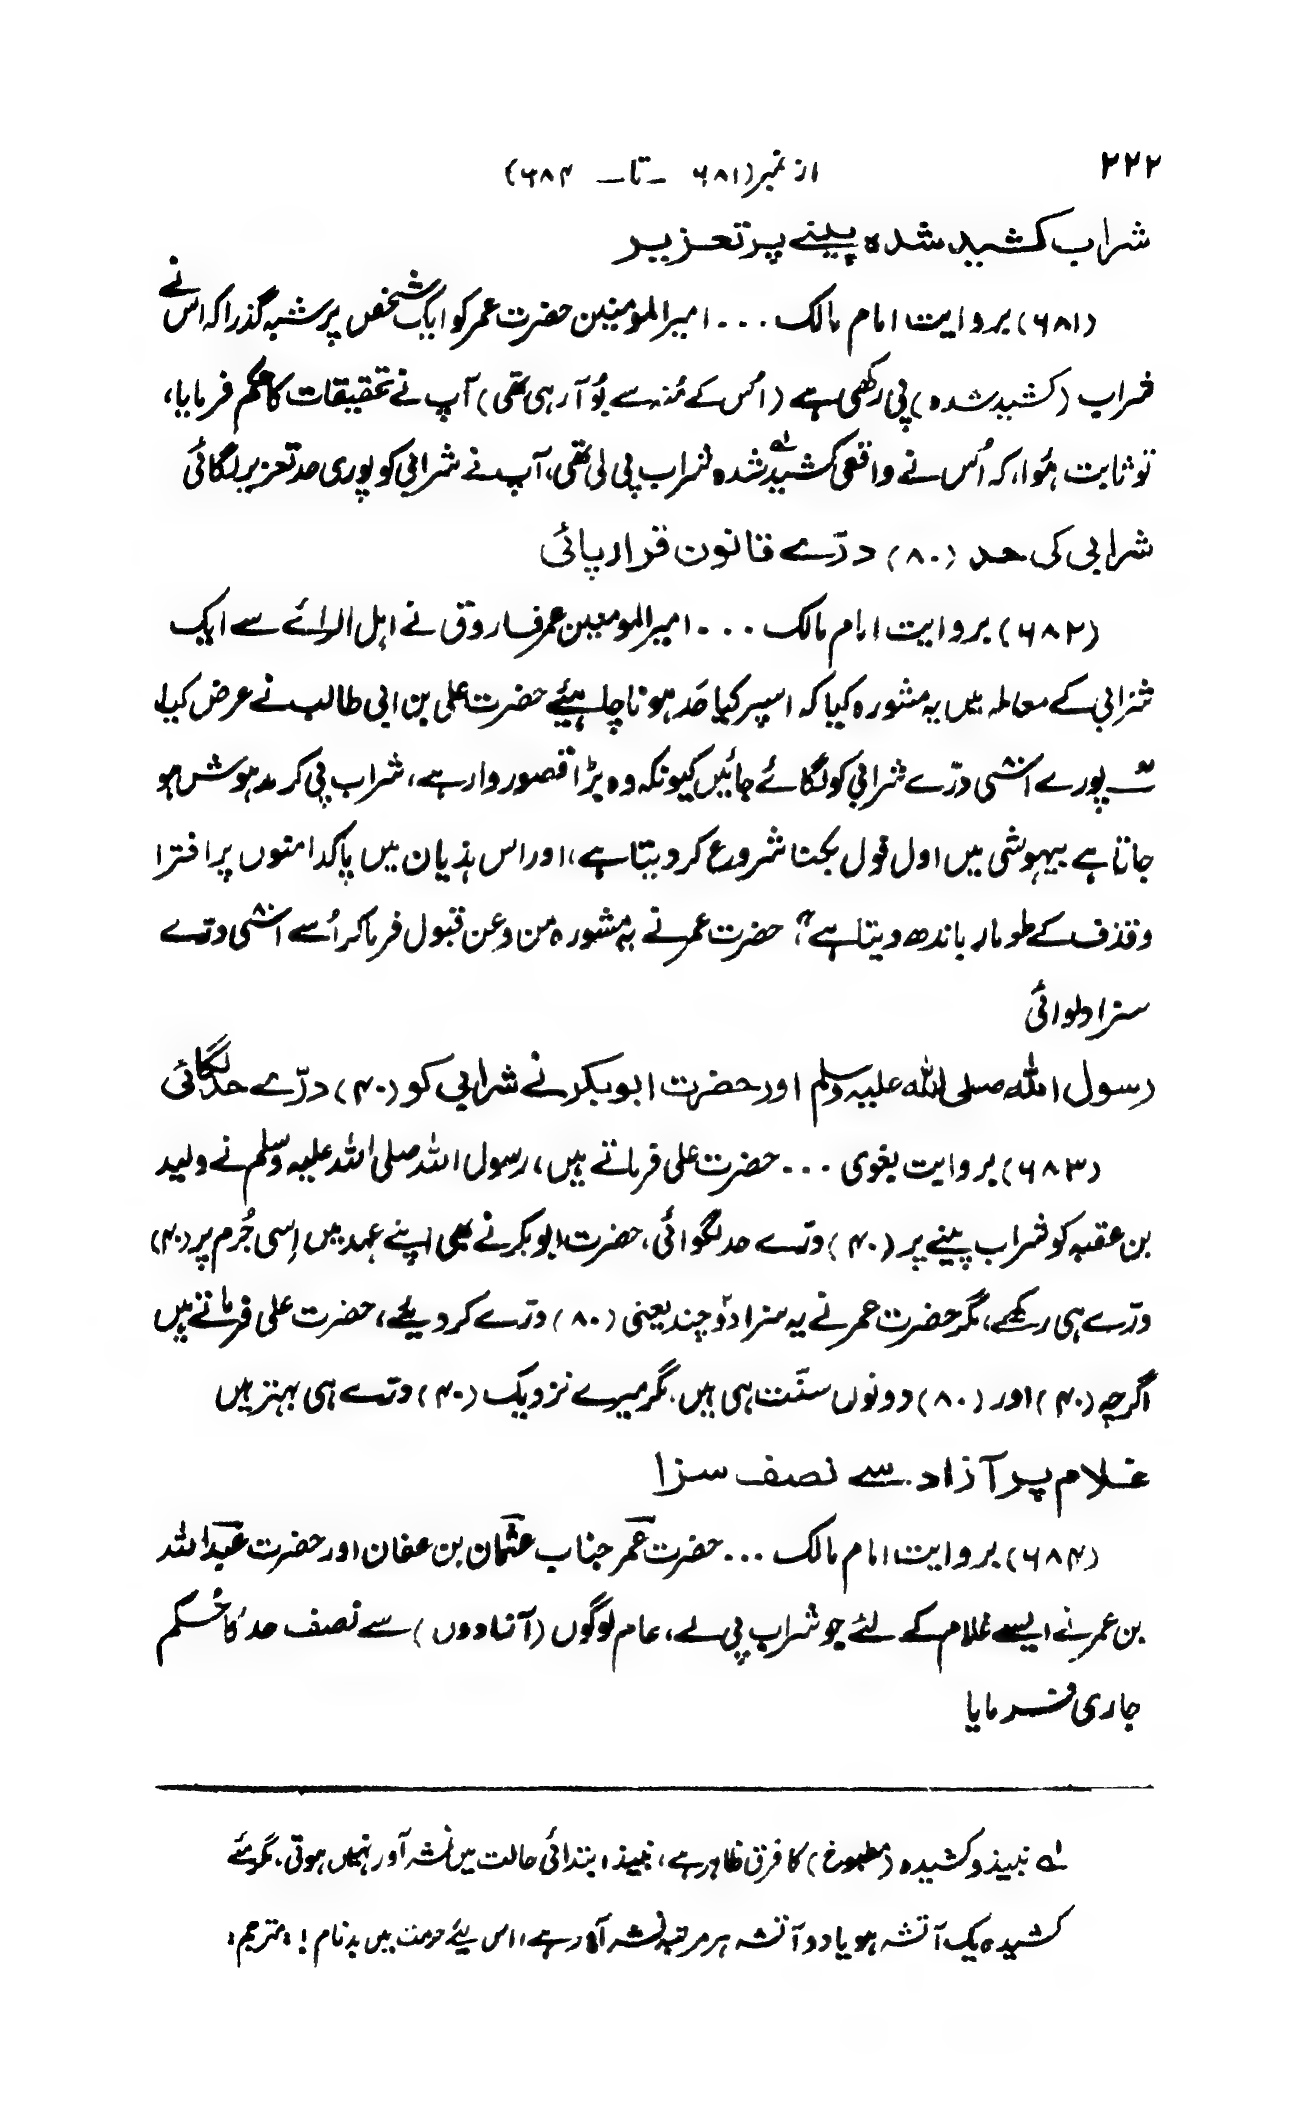 ۲۲۲
از نمبر (۶۸۱ – تا – ۶۸۴)
شراب کشید شدہ پینے پر تعزیر
(۶۸۱) بروایت امام مالک ... امیر المومنین حضرت عمر کو ایک شخص پر شبہ گذرا کہ اس نے
شراب (کشید شدہ) پی رکھی ہے (اُس کے مُنہ سے بُو آ رہی تھی) آپ نے تحقیقات کا حکم فرمایا،
تو ثابت ہُوا، کہ اُس نے واقعی کشید ۱ شدہ شراب پی لی تھی، آپ نے شرابی کو پوری حد تعزیر لگائی
شرابی کی حد (۸۰) درّے قانون قرار پائی
(۶۸۲) بروایت امام مالک ... امیر المومنین عمر فاروق نے اہل الرائے سے ایک
شرابی کے معاملہ میں یہ مشورہ کیا کہ اسپر کیا حَد ہونا چاہیئے حضرت علی بن ابی طالب نے عرض کیا،
" پورے اسّی ۸۰ درّے شرابی کو لگائے جائیں کیونکہ وہ بڑا قصوروار ہے، شراب پی کر مدہوش ہو
جاتا ہے بیہوشی میں اول فول بکنا شروع کر دیتا ہے، اور اس ہذیان میں پاکدامنوں پر افترا
و قذف کے طومار باندھ دیتا ہے"، حضرت عمر نے یہ مشورہ من و عن قبول فرما کر اُسے اسّی ۸۰ درّے
سزا دلوائی
رسول اللہ صلی اللہ علیہ وسلم اور حضرت ابوبکر نے شرابی کو (۴۰) درّے حد لگائی
(۶۸۳) بروایت بغوی ... حضرت علی فرماتے ہیں، رسول اللہ صلی اللہ علیہ وسلم نے ولید
بن عقبہ کو شراب پینے پر (۴۰) درّے حد لگوائی، حضرت ابوبکر نے بھی اپنے عہد میں اِسی جُرم پر (۴۰)
درّے ہی رکھے، مگر حضرت عمر نے یہ سزا دو۲ چند یعنی (۸۰) درّے کر دیئے، حضرت علی فرماتے ہیں
اگرچہ (۴۰) اور (۸۰) دونوں سنّت ہی ہیں. مگر میرے نزدیک (۴۰) درّے ہی بہتر ہیں
غلام پر آزاد سے نصف سزا
(۶۸۴) بروایت امام مالک ... حضرت عمر جناب عثمان بن عفان اور حضرت عبداللہ
بن عمر نے ایسے غلام کے لئے جو شراب پی لے، عام لوگوں (آزادوں) سے نصف حد کا حُکم
جاری فرمایا
۱ نبیذ و کشیدہ (مطبوخ) کا فرق ظاہر ہے، نبیذ ابتدائی حالت میں نشہ آور نہیں ہوتی، مگر مئے
کشیدہ یک آتشہ ہو یا دو آتشہ ہر مرتبہ نشہ آور ہے، اس لیئے حرمت میں بدنام ! :مترجم: